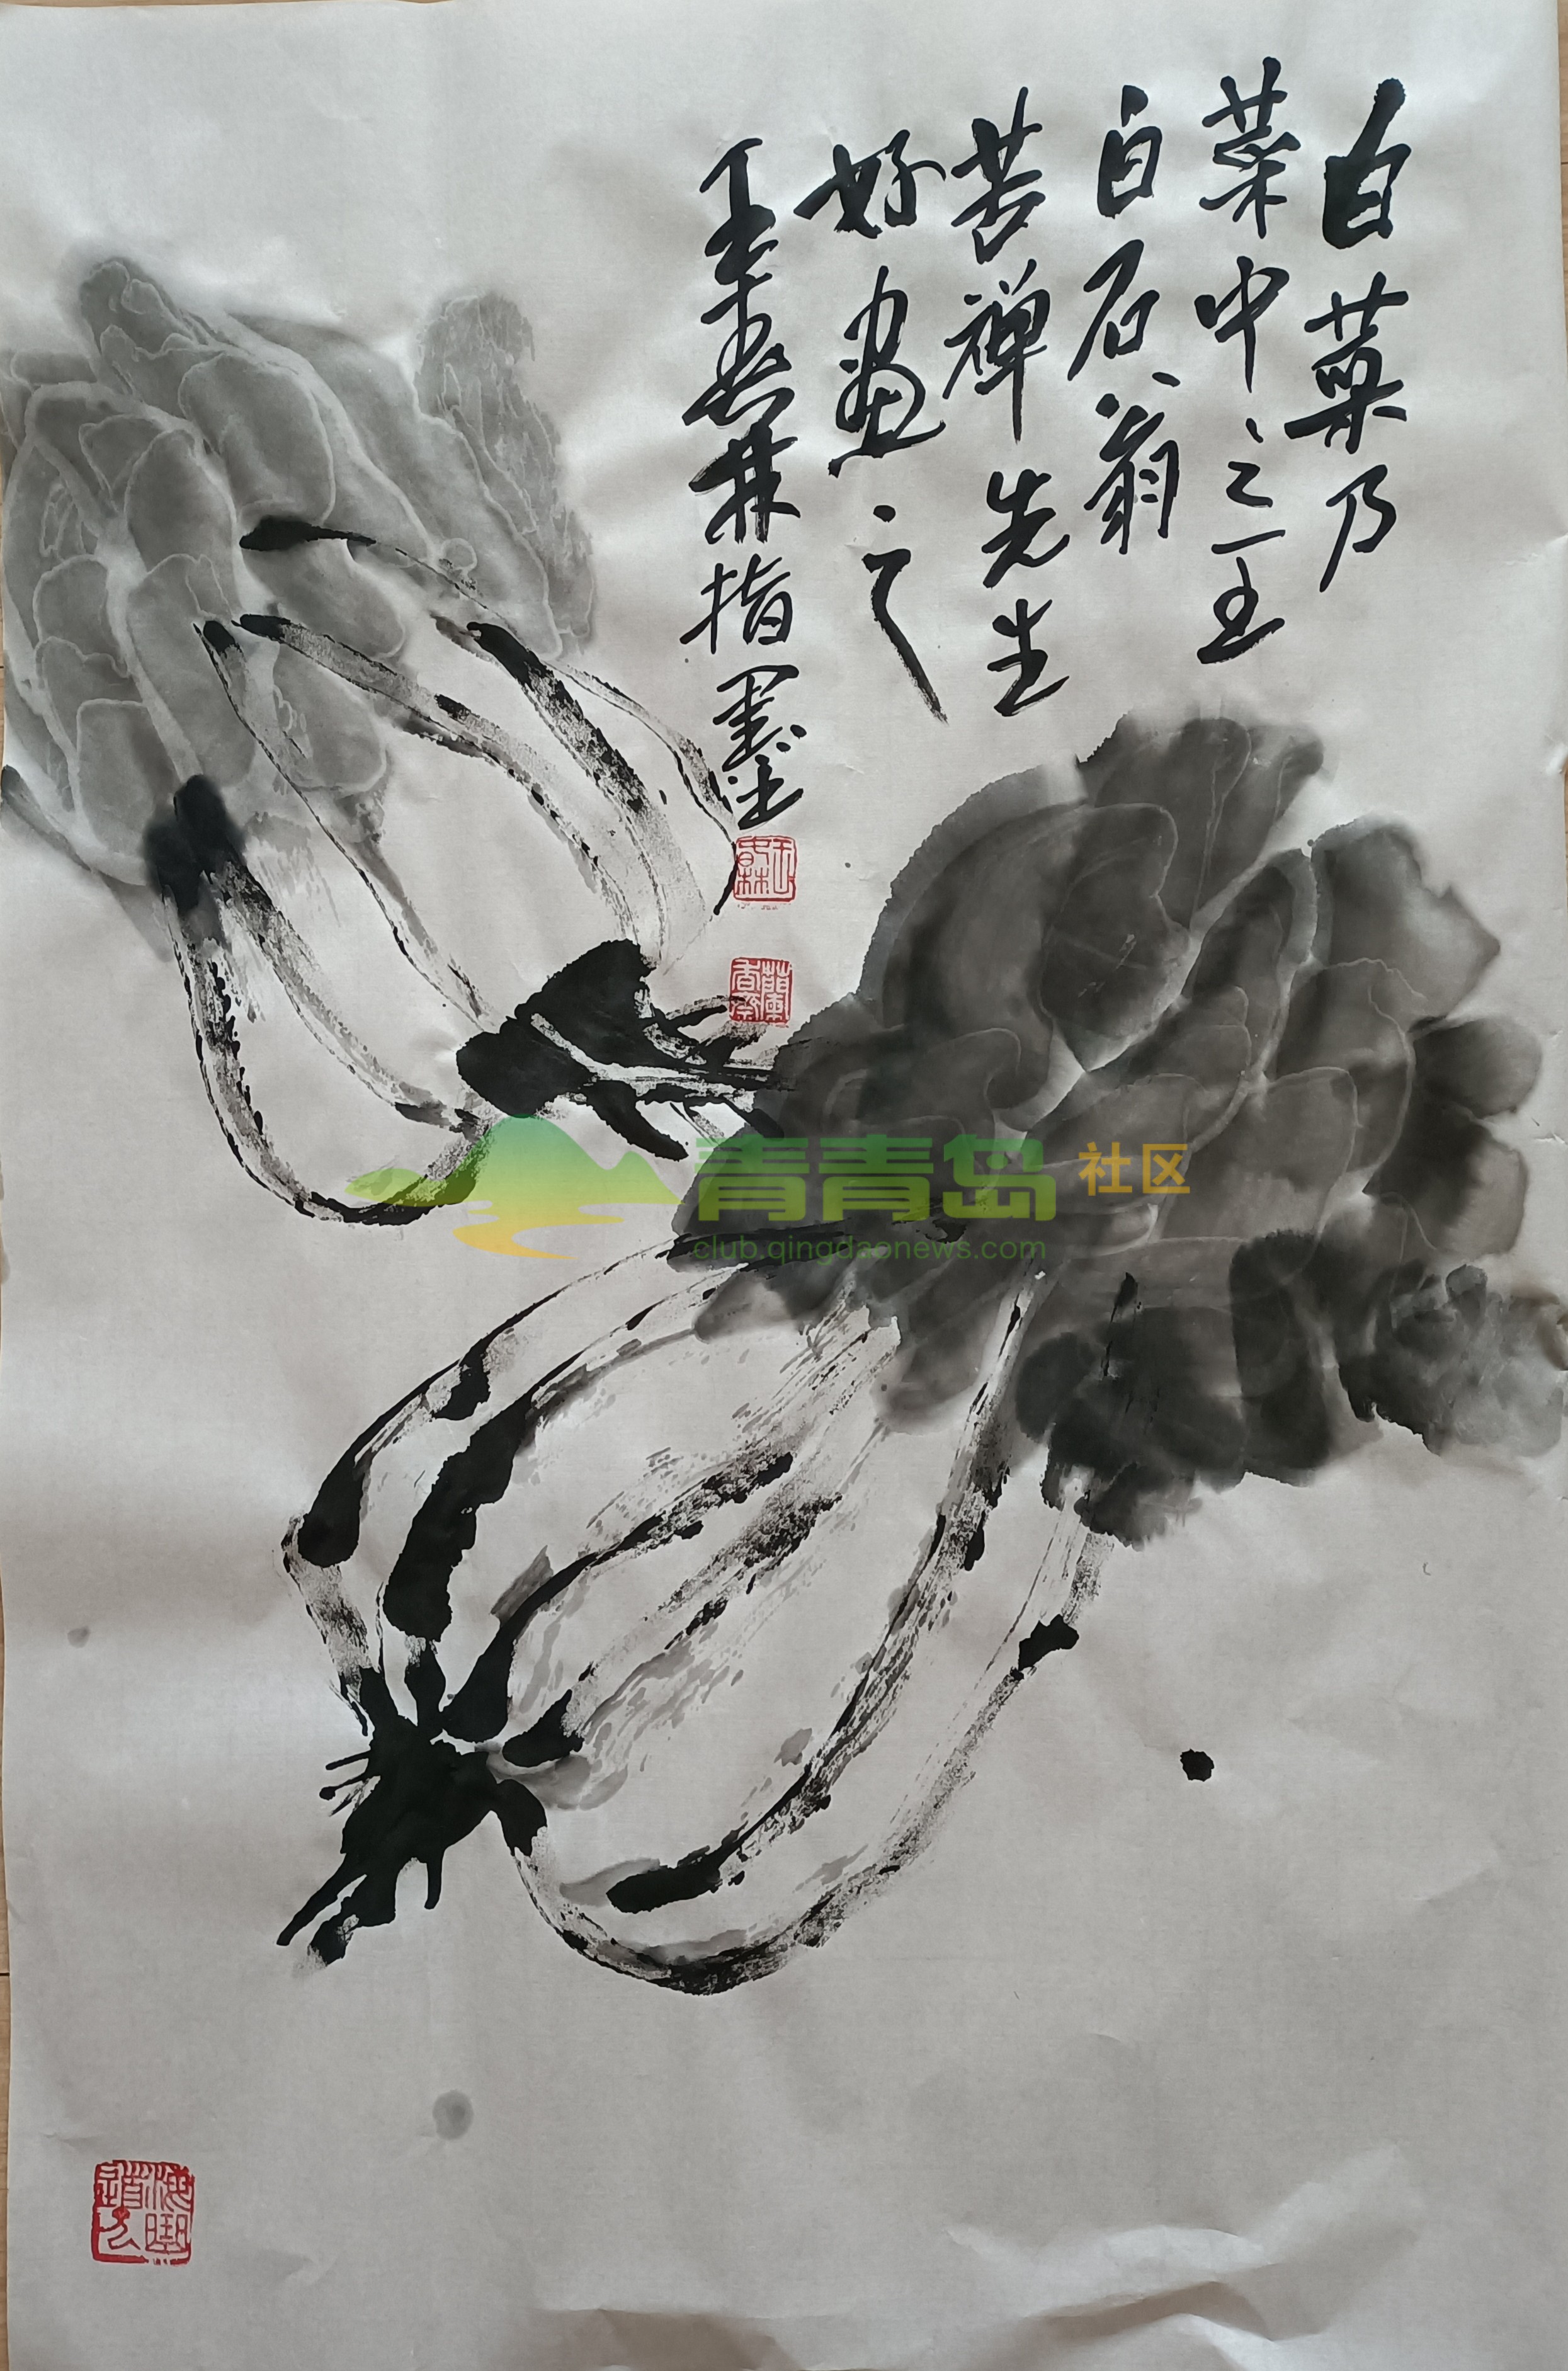 白菜乃
菜中之王
白石翁
苦禅先生
好画之
王春林指墨
青青岛 社区
club.qingdaonews.com